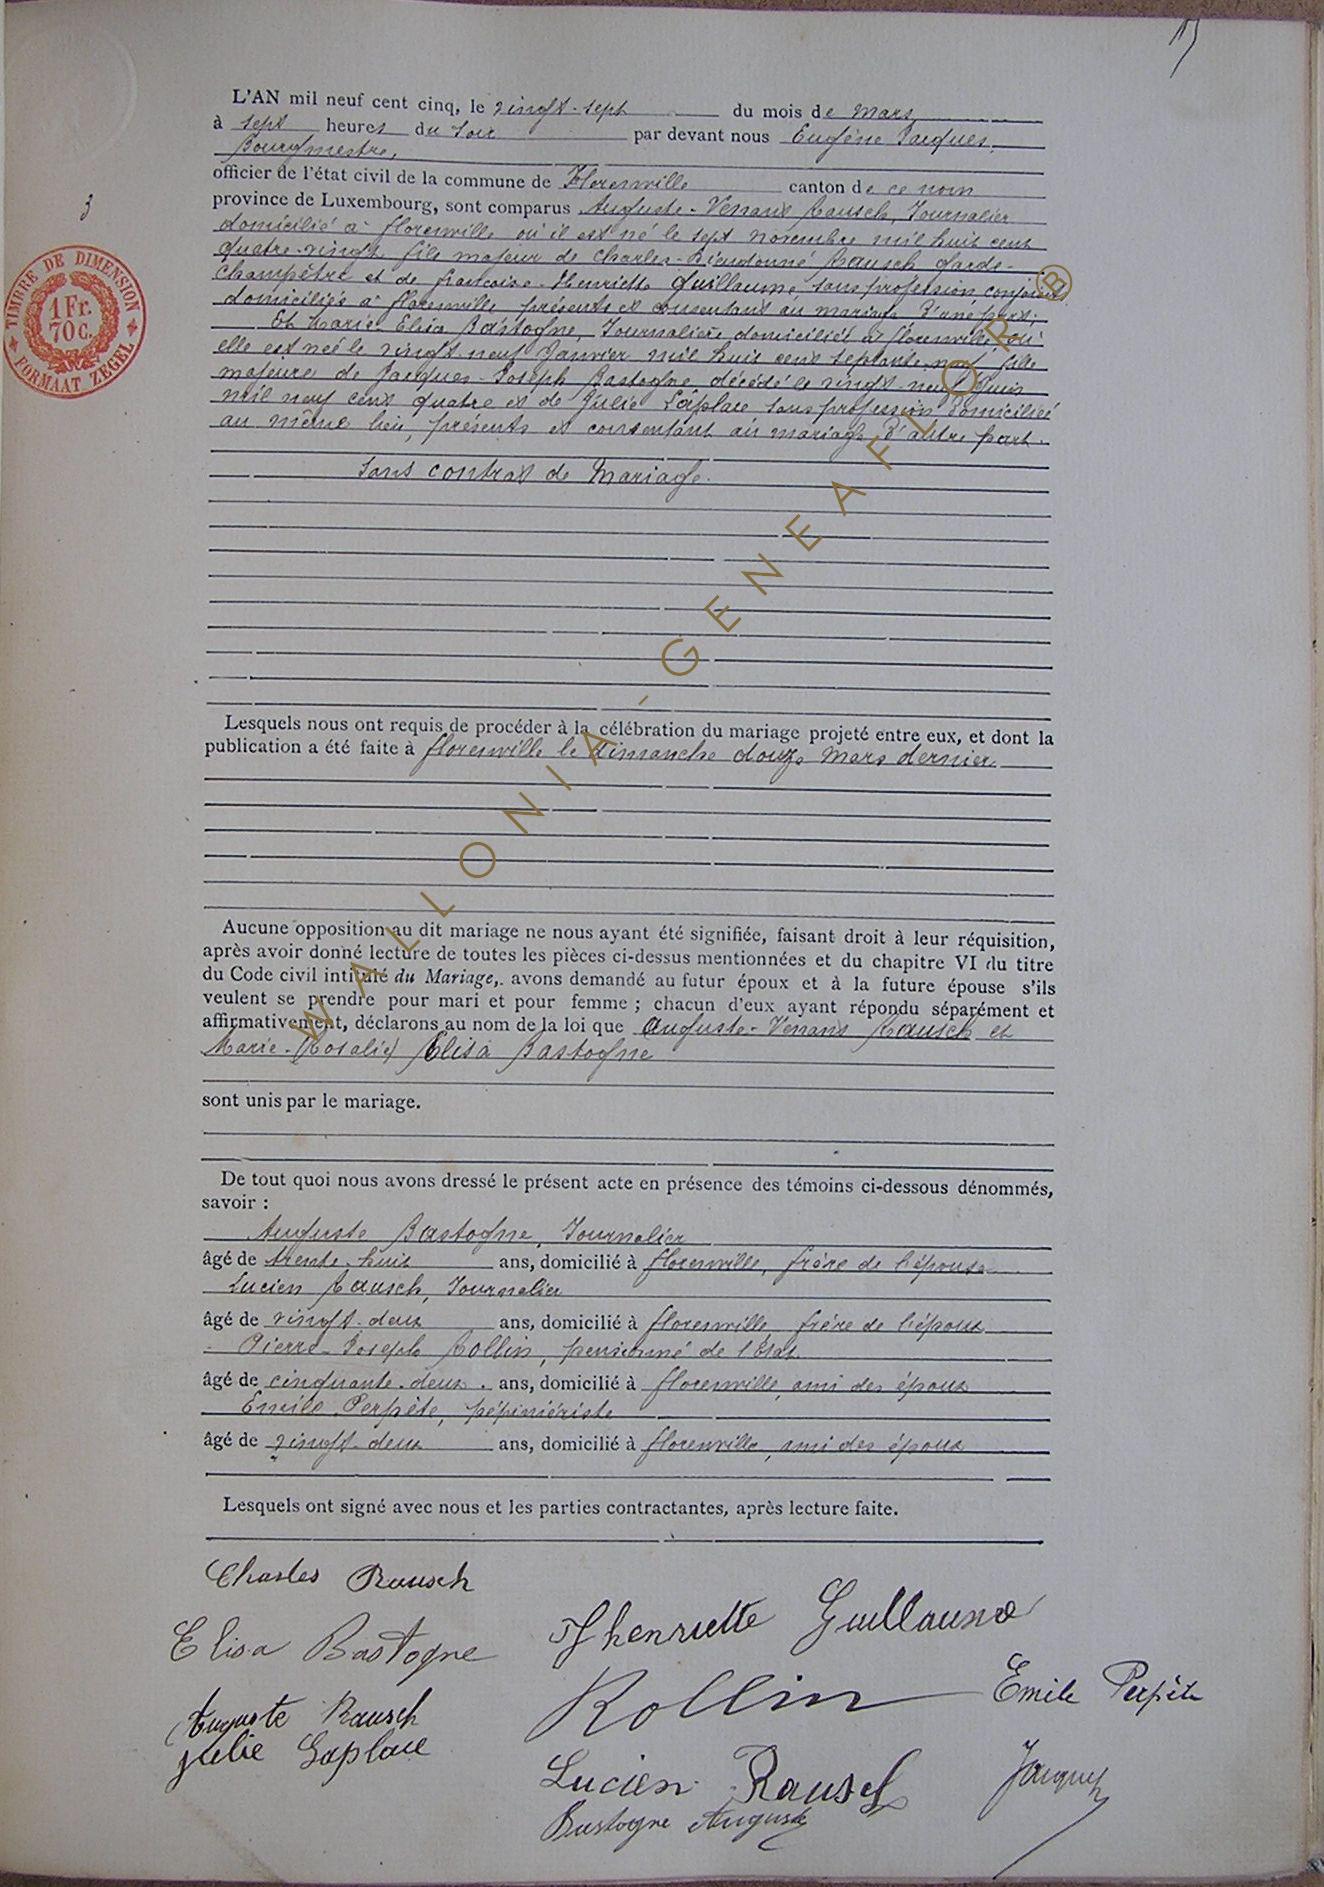 15
L'AN mil neuf cent cinq, le vingt-sept du mois de Mars
à sept heures du soir par devant nous Eugène Jacques,
Bourgmestre,
officier de l'état civil de la commune de Florenville canton de ce nom
province de Luxembourg, sont comparus Auguste-Venant Rausch, Journalier
domicilié à florenville où il est né le sept novembre mil huit cent
quatre-vingt, fils majeur de Charles-Dieudonné Rausch garde-
champêtre et de françoise-Henriette Guillaume, sans profession conjoints
domiciliés à florenville présents et consentant au mariage d'une part;
Et Marie Elisa Bastogne, Journalière domiciliée à florenville où
elle est née le vingt-neuf Janvier mil huit cent septante-neuf fille
majeure de Jacques-Joseph Bastogne décédé le vingt-neuf Juin
mil neuf cent quatre et de Julie Laplace sans profession domiciliée
au même lieu, présente et consentant au mariage d'autre part.
Sans contrat de Mariage.
3
TIMBRE DE DIMENSION
1 Fr.
70 c.
FORMAAT ZEGEL
Lesquels nous ont requis de procéder à la célébration du mariage projeté entre eux, et dont la
publication a été faite à florenville le dimanche douze Mars dernier.
Aucune opposition au dit mariage ne nous ayant été signifiée, faisant droit à leur réquisition,
après avoir donné lecture de toutes les pièces ci-dessus mentionnées et du chapitre VI du titre
du Code civil intitulé du Mariage, avons demandé au futur époux et à la future épouse s'ils
veulent se prendre pour mari et pour femme ; chacun d'eux ayant répondu séparément et
affirmativement, déclarons au nom de la loi que Auguste-Venant Rausch et
Marie-(Rosalie) Elisa Bastogne
sont unis par le mariage.
De tout quoi nous avons dressé le présent acte en présence des témoins ci-dessous dénommés,
savoir :
Auguste Bastogne, Journalier
âgé de trente-huit ans, domicilié à florenville, frère de l'épouse
Lucien Rausch, Journalier
âgé de vingt-deux ans, domicilié à florenville, frère de l'époux
Pierre-Joseph Rollin, pensionné de l'Etat
âgé de cinquante-deux ans, domicilié à florenville, ami des époux
Emile Perpète, pépiniériste
âgé de vingt-deux ans, domicilié à florenville, ami des époux
Lesquels ont signé avec nous et les parties contractantes, après lecture faite.
Charles Rausch
Elisa Bastogne
Henriette Guillaume
Rollin
Emile Perpète
Auguste Rausch
Julie Laplace
Lucien Rausch
Jacques
Bastogne Auguste
WALLONIA-GENEAFLOR ®